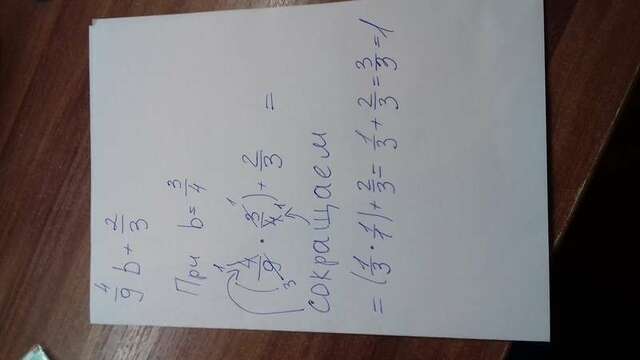 4/9 b + 2/3
При b = 3/4
(4/9 · 3/4) + 2/3 =
1 1 3 1
сокращаем
= (1/3 · 1/1) + 2/3 = 1/3 + 2/3 = 3/3 = 1